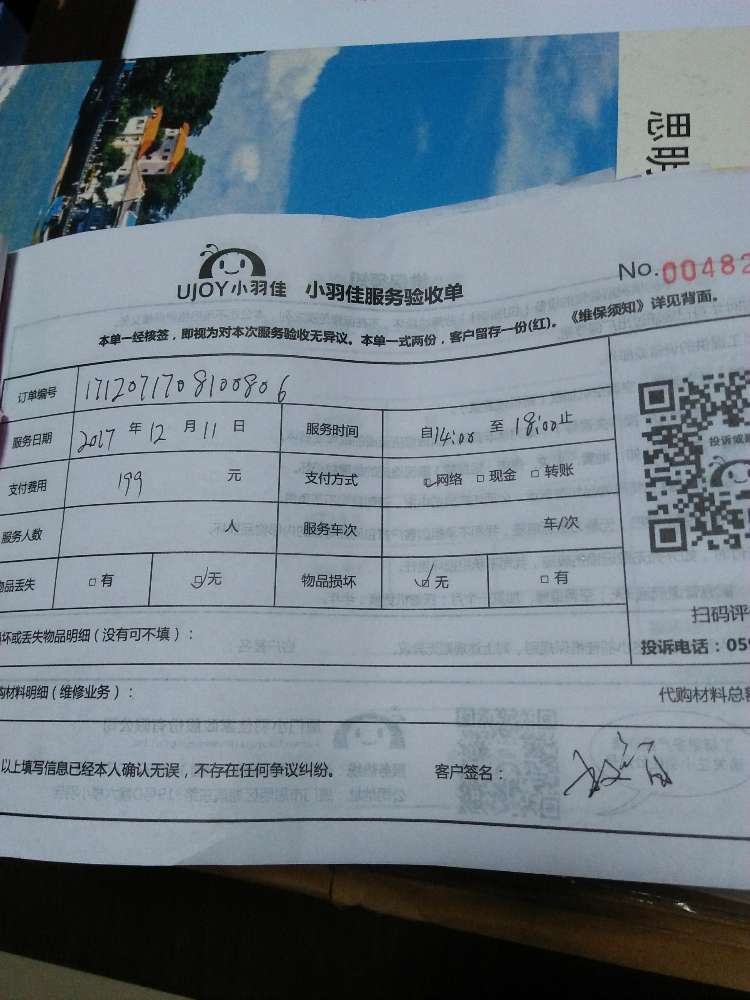 思明
UJOY小羽佳 小羽佳服务验收单
No.00482
本单一经核签，即视为对本次服务验收无异议。本单一式两份，客户留存一份(红)。《维保须知》详见背面。
订单编号 1712071708100806
服务日期 2017 年 12 月 11 日 服务时间 自14:00 至 18:00止
支付费用 199 元 支付方式 □网络 □现金 □转账
服务人数 人 服务车次 车/次
物品丢失 □有 □无 物品损坏 □无 □有
投诉或
扫码评
坏或丢失物品明细（没有可不填）：
投诉电话：059
购材料明细（维修业务）：
代购材料总额
以上填写信息已经本人确认无误，不存在任何争议纠纷。
客户签名：